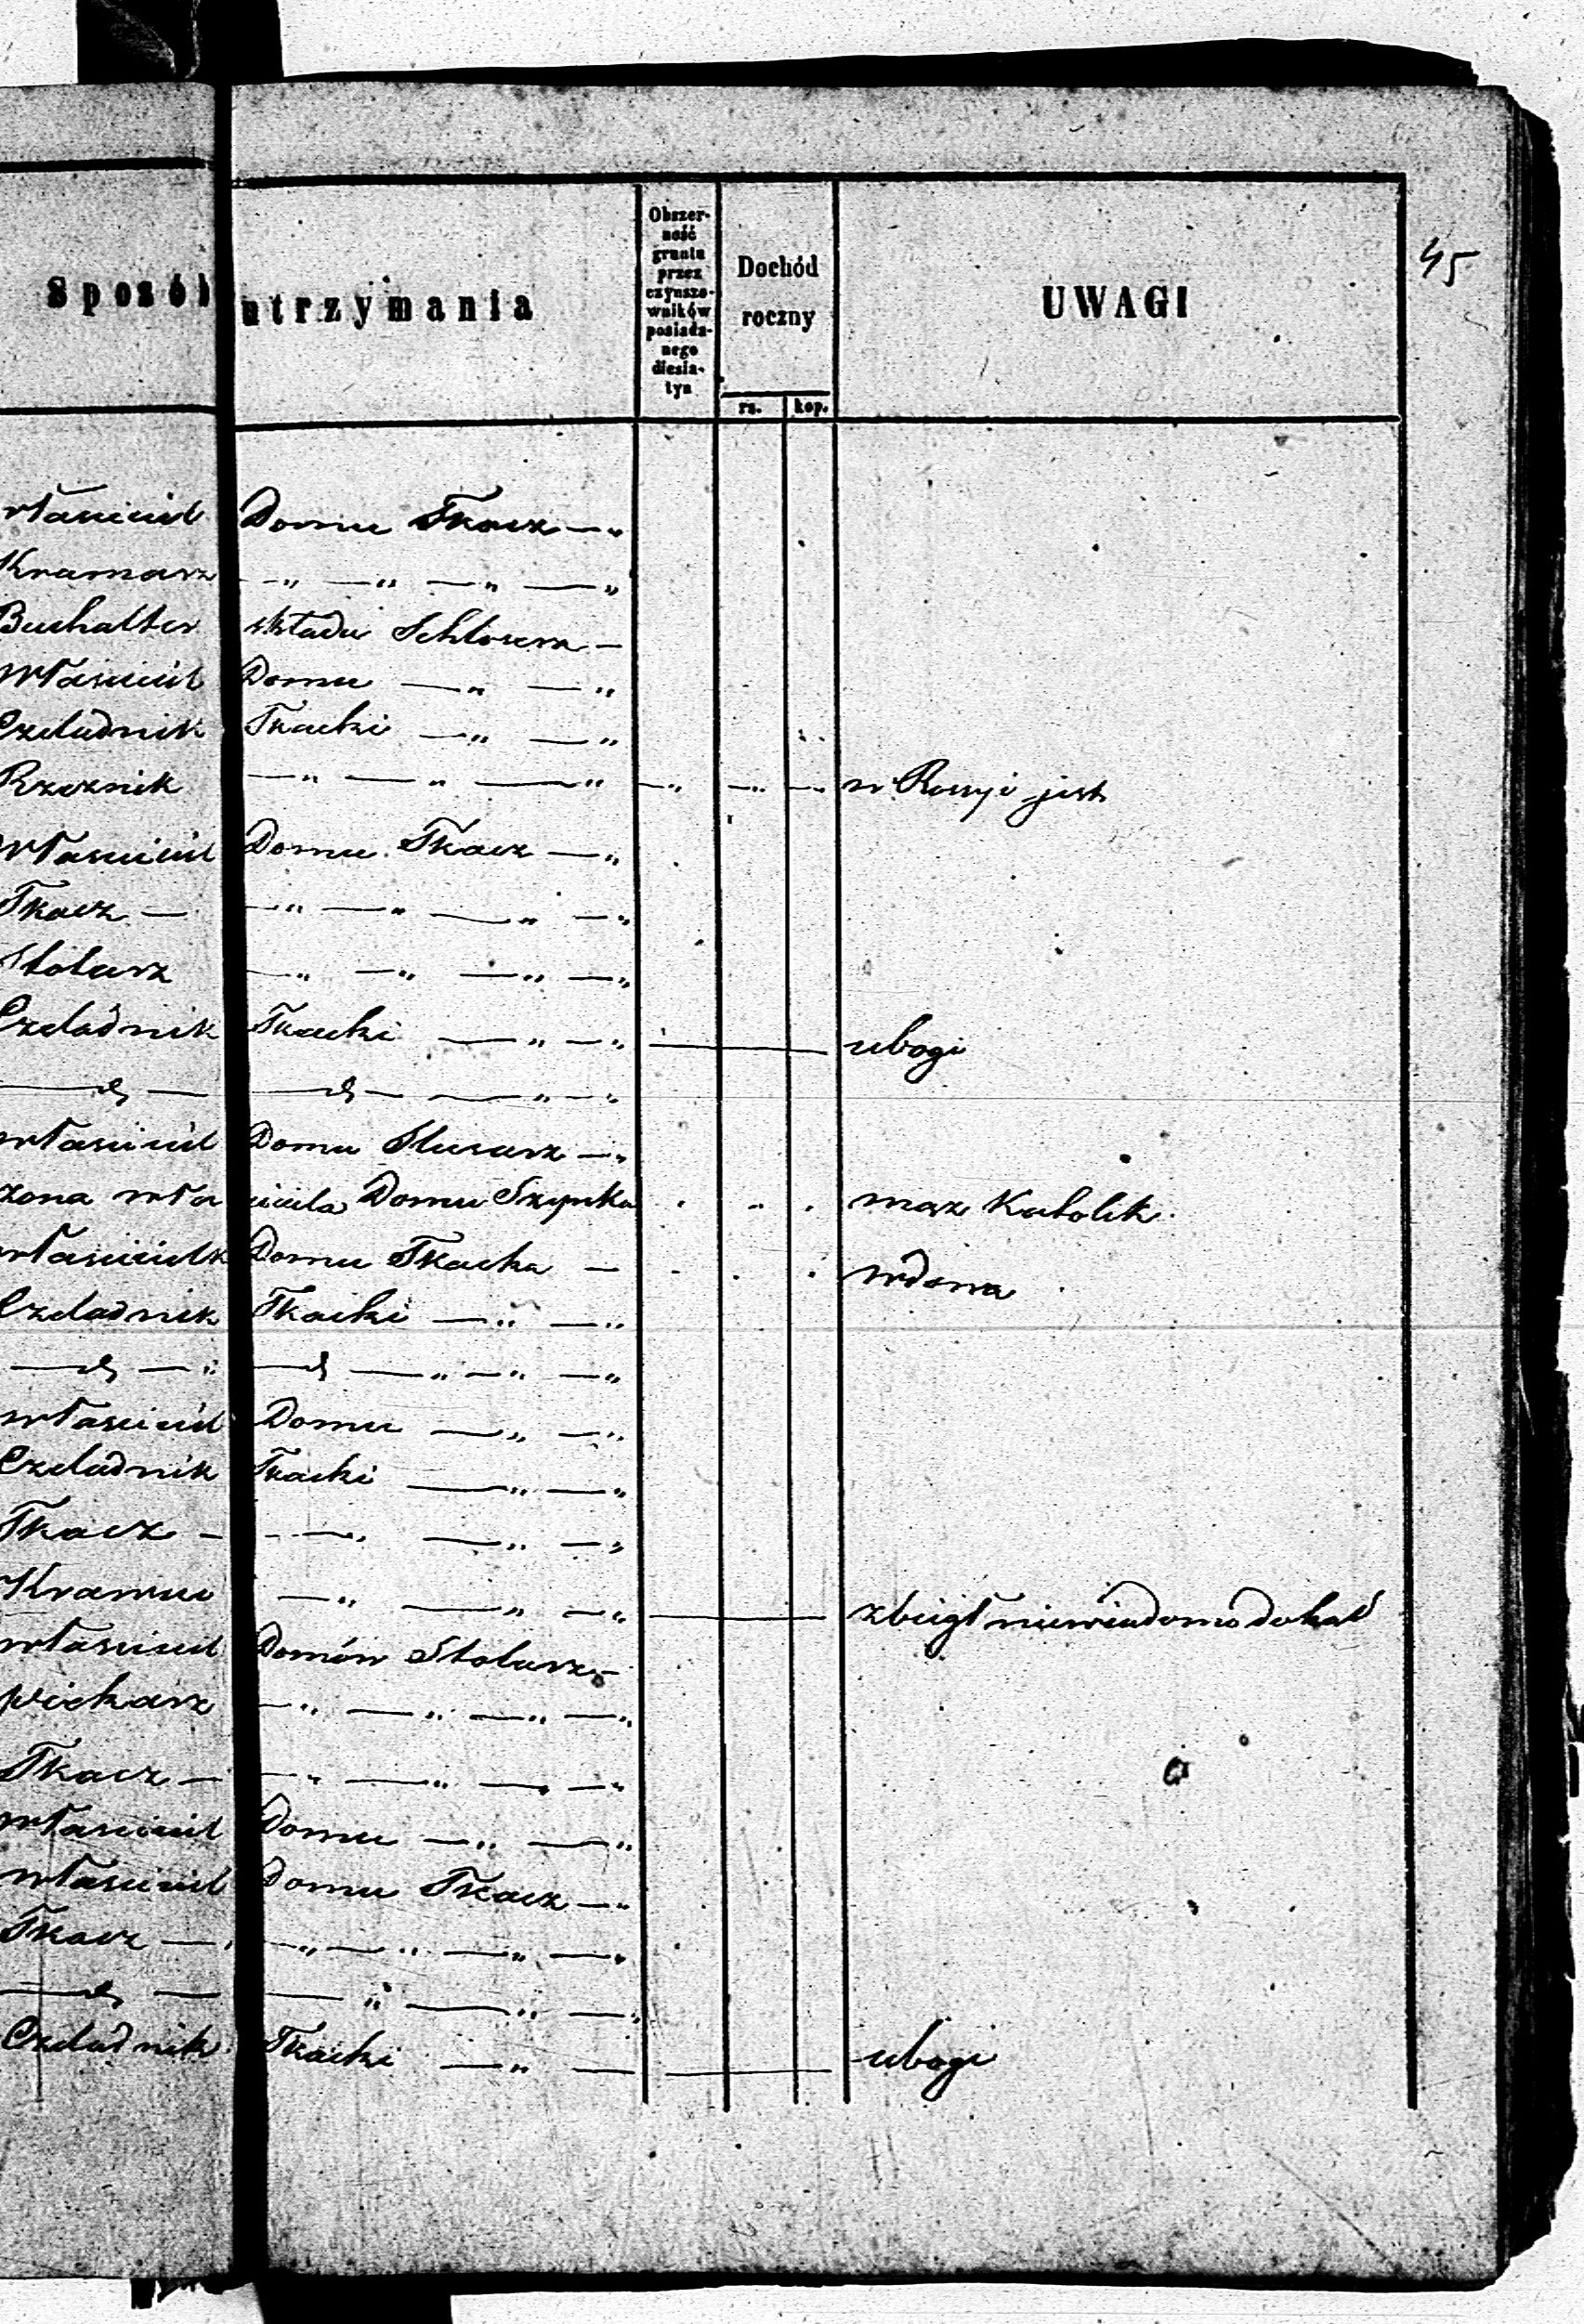 45
Sposób utrzymania
Obszerność gruntu przez czynszowników posiadanego diesiatyn
Dochód roczny
rs. kop.
UWAGI
właściciel Domu Tkacz — "
Kramarz — " — " — " — "
Buchalter składu Schlosera —
Właściciel Domu — " — "
Czeladnik Tkacki — " — "
Rzeznik — " — " — " — " — " — " w Rossyi jest
Właściciel Domu Tkacz — "
Tkacz — — " — " — " — "
Stolarz — " — " — " — "
Czeladnik Tkacki — " — " — ubogi
— d — — d — — " — "
właściciel Domu Slusarz — "
żona wła ściciela Domu Szynka " " " mąż Katolik
właścicielk Domu Tkacka — " " " wdowa
Czeladnik Tkacki — " — "
— d — " — d — " — " — "
właściciel Domu — " — "
Czeladnik Tkacki — " — "
Tkacz — — " — " — "
— " — " — " — zbiegł niewiadomo dokąd
właściciel Domów Stolarz —
piekarz — " — " — " — "
Tkacz — — " — " — " — "
właściciel Domu — " — "
właściciel Domu Tkacz — "
Tkacz — " — " — " — " — "
— d — — " — " — "
Czeladnik Tkacki — " — — ubogi